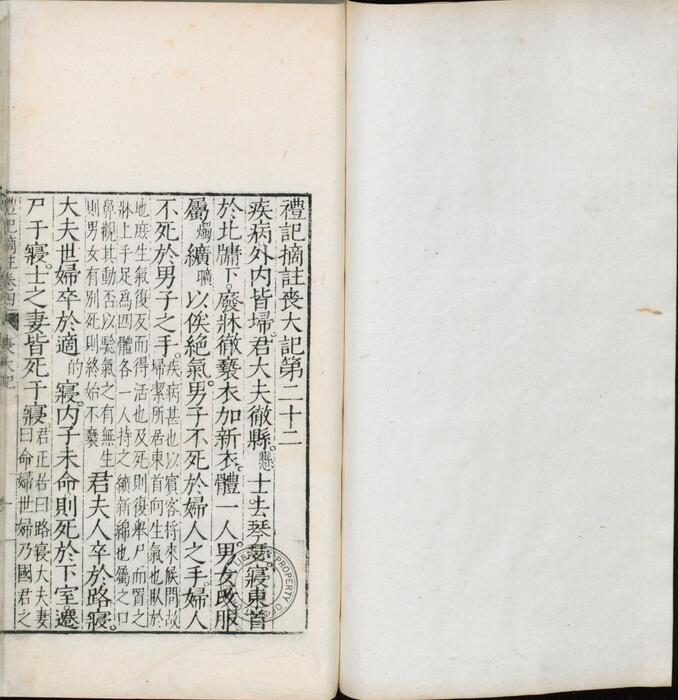 禮記摘註喪大記第二十二
疾病外內皆埽。君大夫徹縣。懸士去琴瑟。寢東首
於北牖下。廢牀徹褻衣加新衣。體一人。男女改服
屬燭纊曠以俟絕氣。男子不死於婦人之手。婦人
不死於男子之手。疾病甚也以賓客將來候問故
埽潔所居東首向生氣也臥於
地庶生氣復反而得活也及死則復舉尸而置之
牀上手足為四體各一人持之纊新綿也屬之口
鼻觀其動否以驗氣之有無生
則男女有別死則終始不褻君夫人卒於路寢。
大夫世婦卒於適的寢。內子未命則死於下室。遷
尸于寢。士之妻皆死于寢。君正者曰路寢大夫妻
曰命婦世婦乃國君之
禮記摘註卷四 喪大記
LIBRARY PROPERTY OF